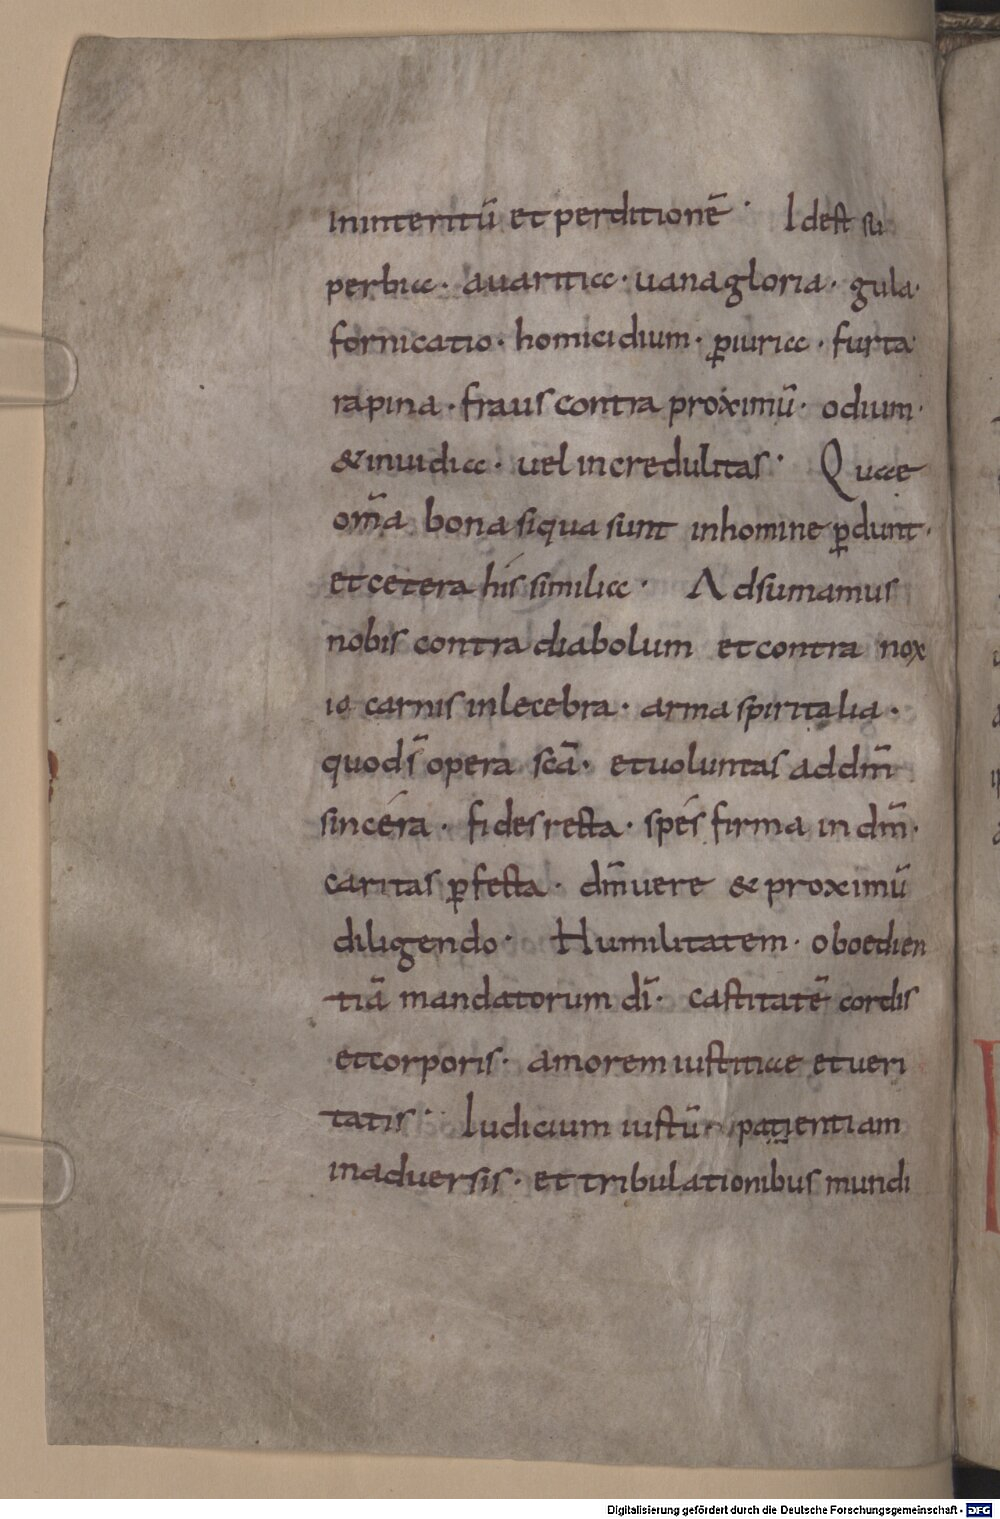 ininteritū et perditionē · Idest su
perbia · auaritia · uana gloria · gula ·
fornicatio · homicidium · ꝑiuria · furta
rapina · fraus contra proximū · odium ·
& inuidia · uel incredulitas · Quae
om̄a bona siqua sunt inhomine ꝑdunt ·
et cetera his similia · Adsumamus
nobis contra diabolum et contra nox
ia carnis inlecebra · arma spiritalia ·
quod s̄ opera sc̄a · et uoluntas ad dm̄
sincéra · fides recta · spés firma in dm̄ ·
caritas ꝑfecta · dm̄ uere & proximū
diligendo · Humilitatem · oboedien
tiā mandatorum dī · castitatē cordis
et corporis · amorem iustitiae et ueri
tatis · Iudicium iustū · patientiam
inaduersis · et tribulationibus mundi
Digitalisierung gefördert durch die Deutsche Forschungsgemeinschaft - DFG